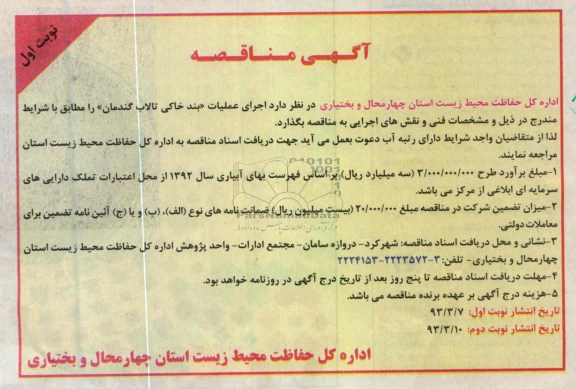 نوبت اول
آگهی مناقصه
اداره کل حفاظت محیط زیست استان چهارمحال و بختیاری در نظر دارد اجرای عملیات «بند خاکی تالاب گندمان» را مطابق با شرایط
مندرج در ذیل و مشخصات فنی و نقش های اجرایی به مناقصه بگذارد.
لذا از متقاضیان واجد شرایط دارای رتبه آب دعوت بعمل می آید جهت دریافت اسناد مناقصه به اداره کل حفاظت محیط زیست استان
مراجعه نمایند.
۱-مبلغ برآورد طرح ۳/۰۰۰/۰۰۰/۰۰۰ (سه میلیارد ریال) براساس فهرست بهای آبیاری سال ۱۳۹۲ از محل اعتبارات تملک دارایی های
سرمایه ای ابلاغی از مرکز می باشد.
۲-میزان تضمین شرکت در مناقصه مبلغ ۲۰/۰۰۰/۰۰۰ (بیست میلیون ریال) ضمانت نامه های نوع (الف)، (ب) و یا (ج) آئین نامه تضمین برای
معاملات دولتی.
۳-نشانی و محل دریافت اسناد مناقصه: شهرکرد- دروازه سامان- مجتمع ادارات- واحد پژوهش اداره کل حفاظت محیط زیست استان
چهارمحال و بختیاری- تلفن: ۳-۲۲۲۳۵۷۲-۲۲۲۴۱۵۳
۴-مهلت دریافت اسناد مناقصه تا پنج روز بعد از تاریخ درج آگهی در روزنامه خواهد بود.
۵-هزینه درج آگهی بر عهده برنده مناقصه می باشد.
تاریخ انتشار نوبت اول: ۹۳/۳/۷
تاریخ انتشار نوبت دوم: ۹۳/۳/۱۰
اداره کل حفاظت محیط زیست استان چهارمحال و بختیاری